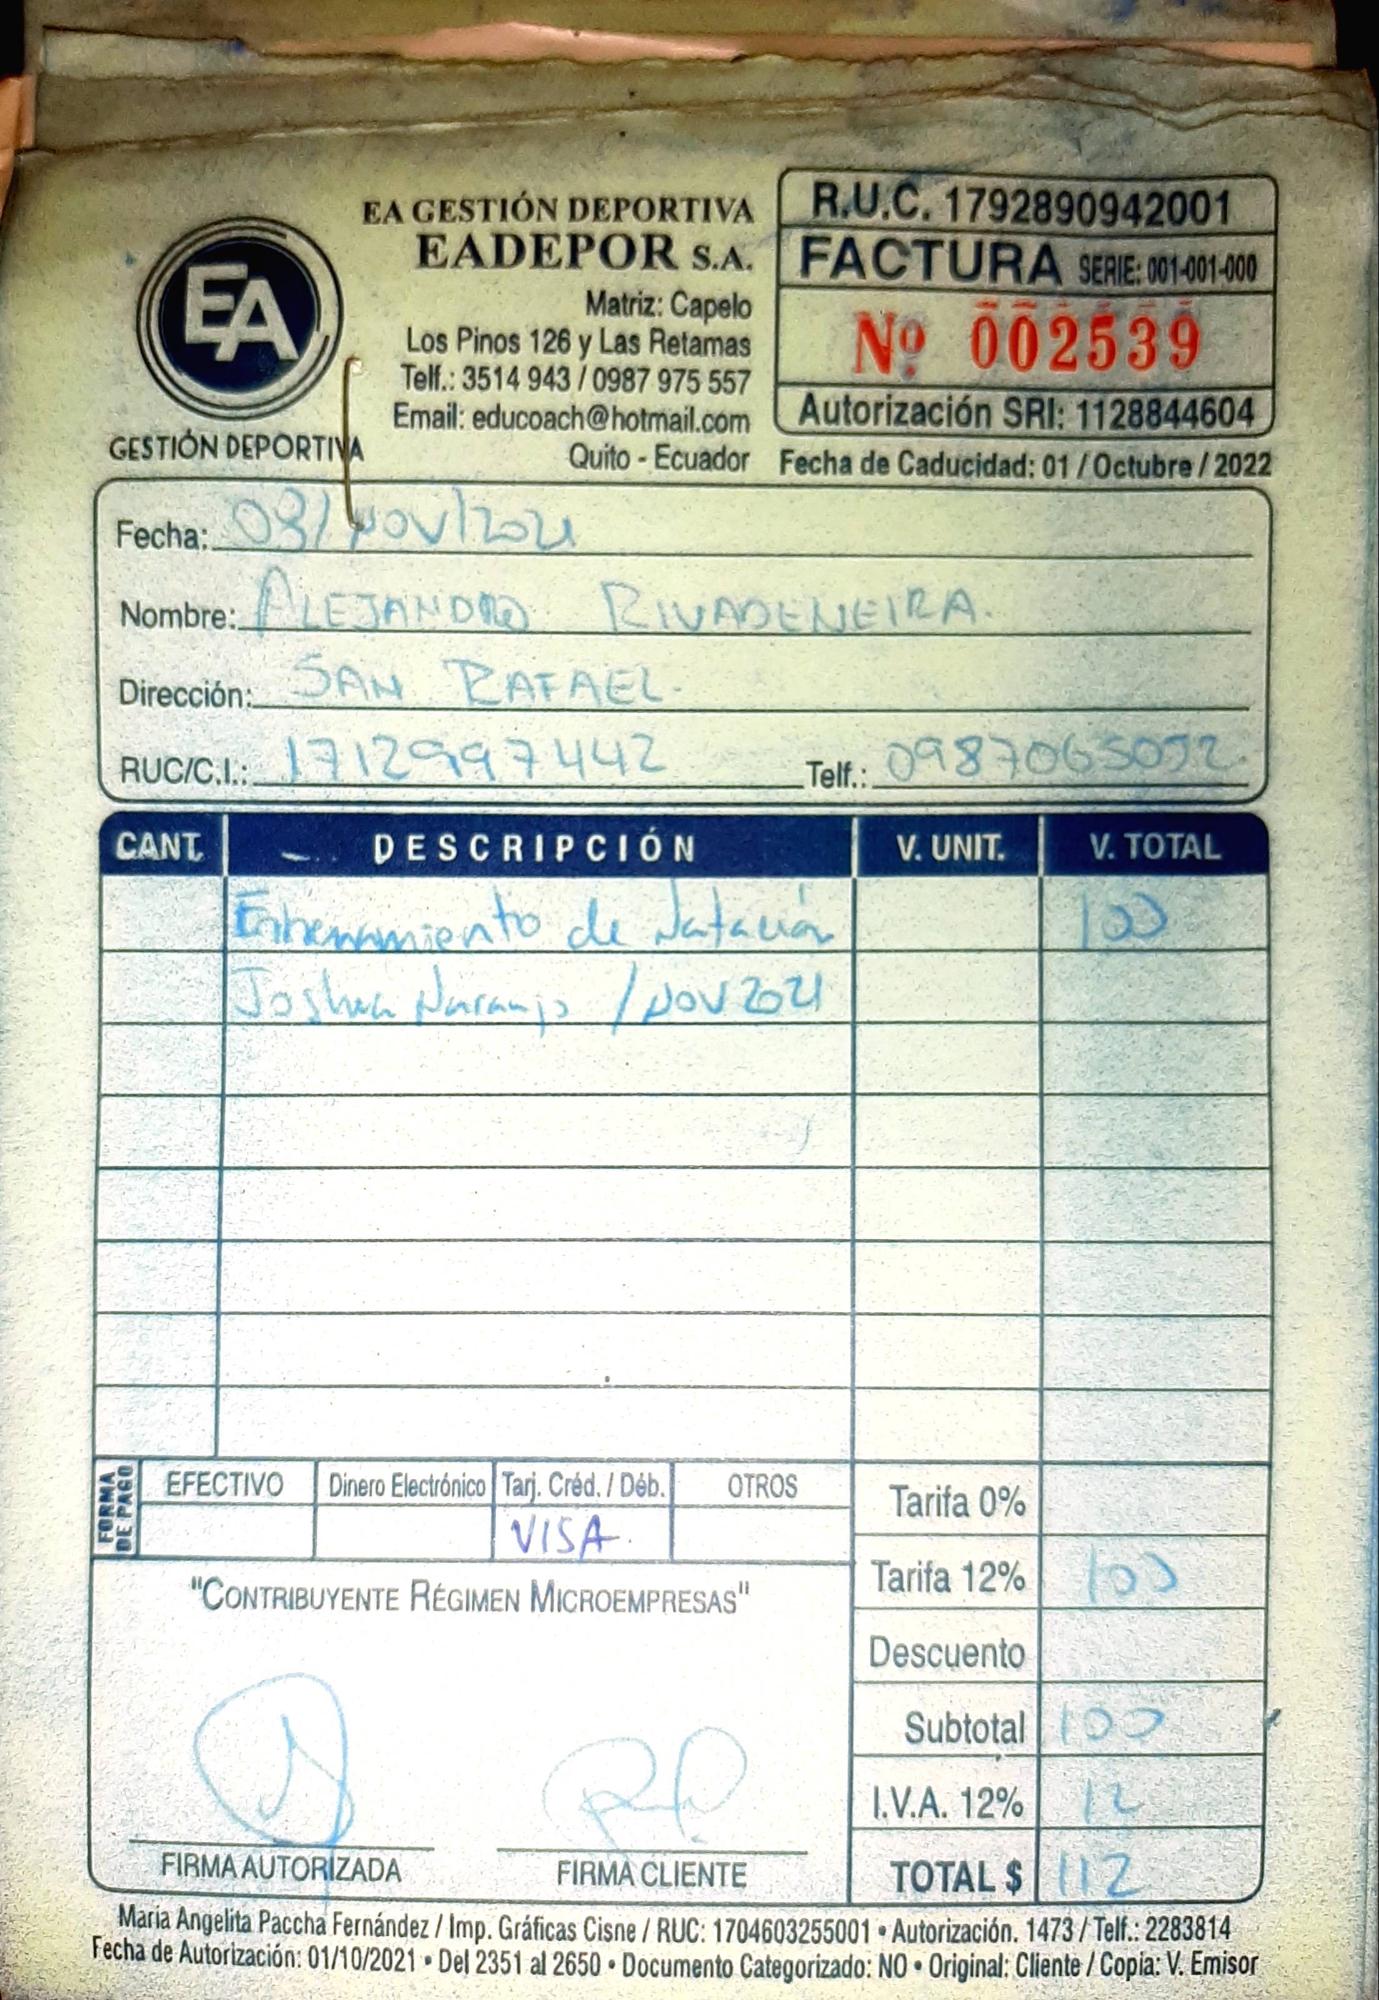 EA GESTIÓN DEPORTIVA
EADEPOR S.A.
Matriz: Capelo
Los Pinos 126 y Las Retamas
Telf.: 3514 943 / 0987 975 557
Email: educoach@hotmail.com
Quito - Ecuador
EA
GESTIÓN DEPORTIVA
R.U.C. 1792890942001
FACTURA SERIE: 001-001-000
Nº 002539
Autorización SRI: 1128844604
Fecha de Caducidad: 01 / Octubre / 2022
Fecha: 03/NOV/2021
Nombre: ALEJANDRO RIVADENEIRA.
Dirección: SAN RAFAEL.
RUC/C.I.: 1712997442 Telf.: 0987065092
CANT. DESCRIPCIÓN V. UNIT. V. TOTAL
Entrenamiento de Natación 100
Joshua Naranjo / NOV 2021
FORMA DE PAGO
EFECTIVO Dinero Electrónico Tarj. Créd. / Déb. OTROS
VISA.
Tarifa 0%
Tarifa 12% 100
Descuento
Subtotal 100
I.V.A. 12% 12
TOTAL $ 112
"CONTRIBUYENTE RÉGIMEN MICROEMPRESAS"
FIRMA AUTORIZADA FIRMA CLIENTE
María Angelita Paccha Fernández / Imp. Gráficas Cisne / RUC: 1704603255001 • Autorización. 1473 / Telf.: 2283814
Fecha de Autorización: 01/10/2021 • Del 2351 al 2650 • Documento Categorizado: NO • Original: Cliente / Copia: V. Emisor